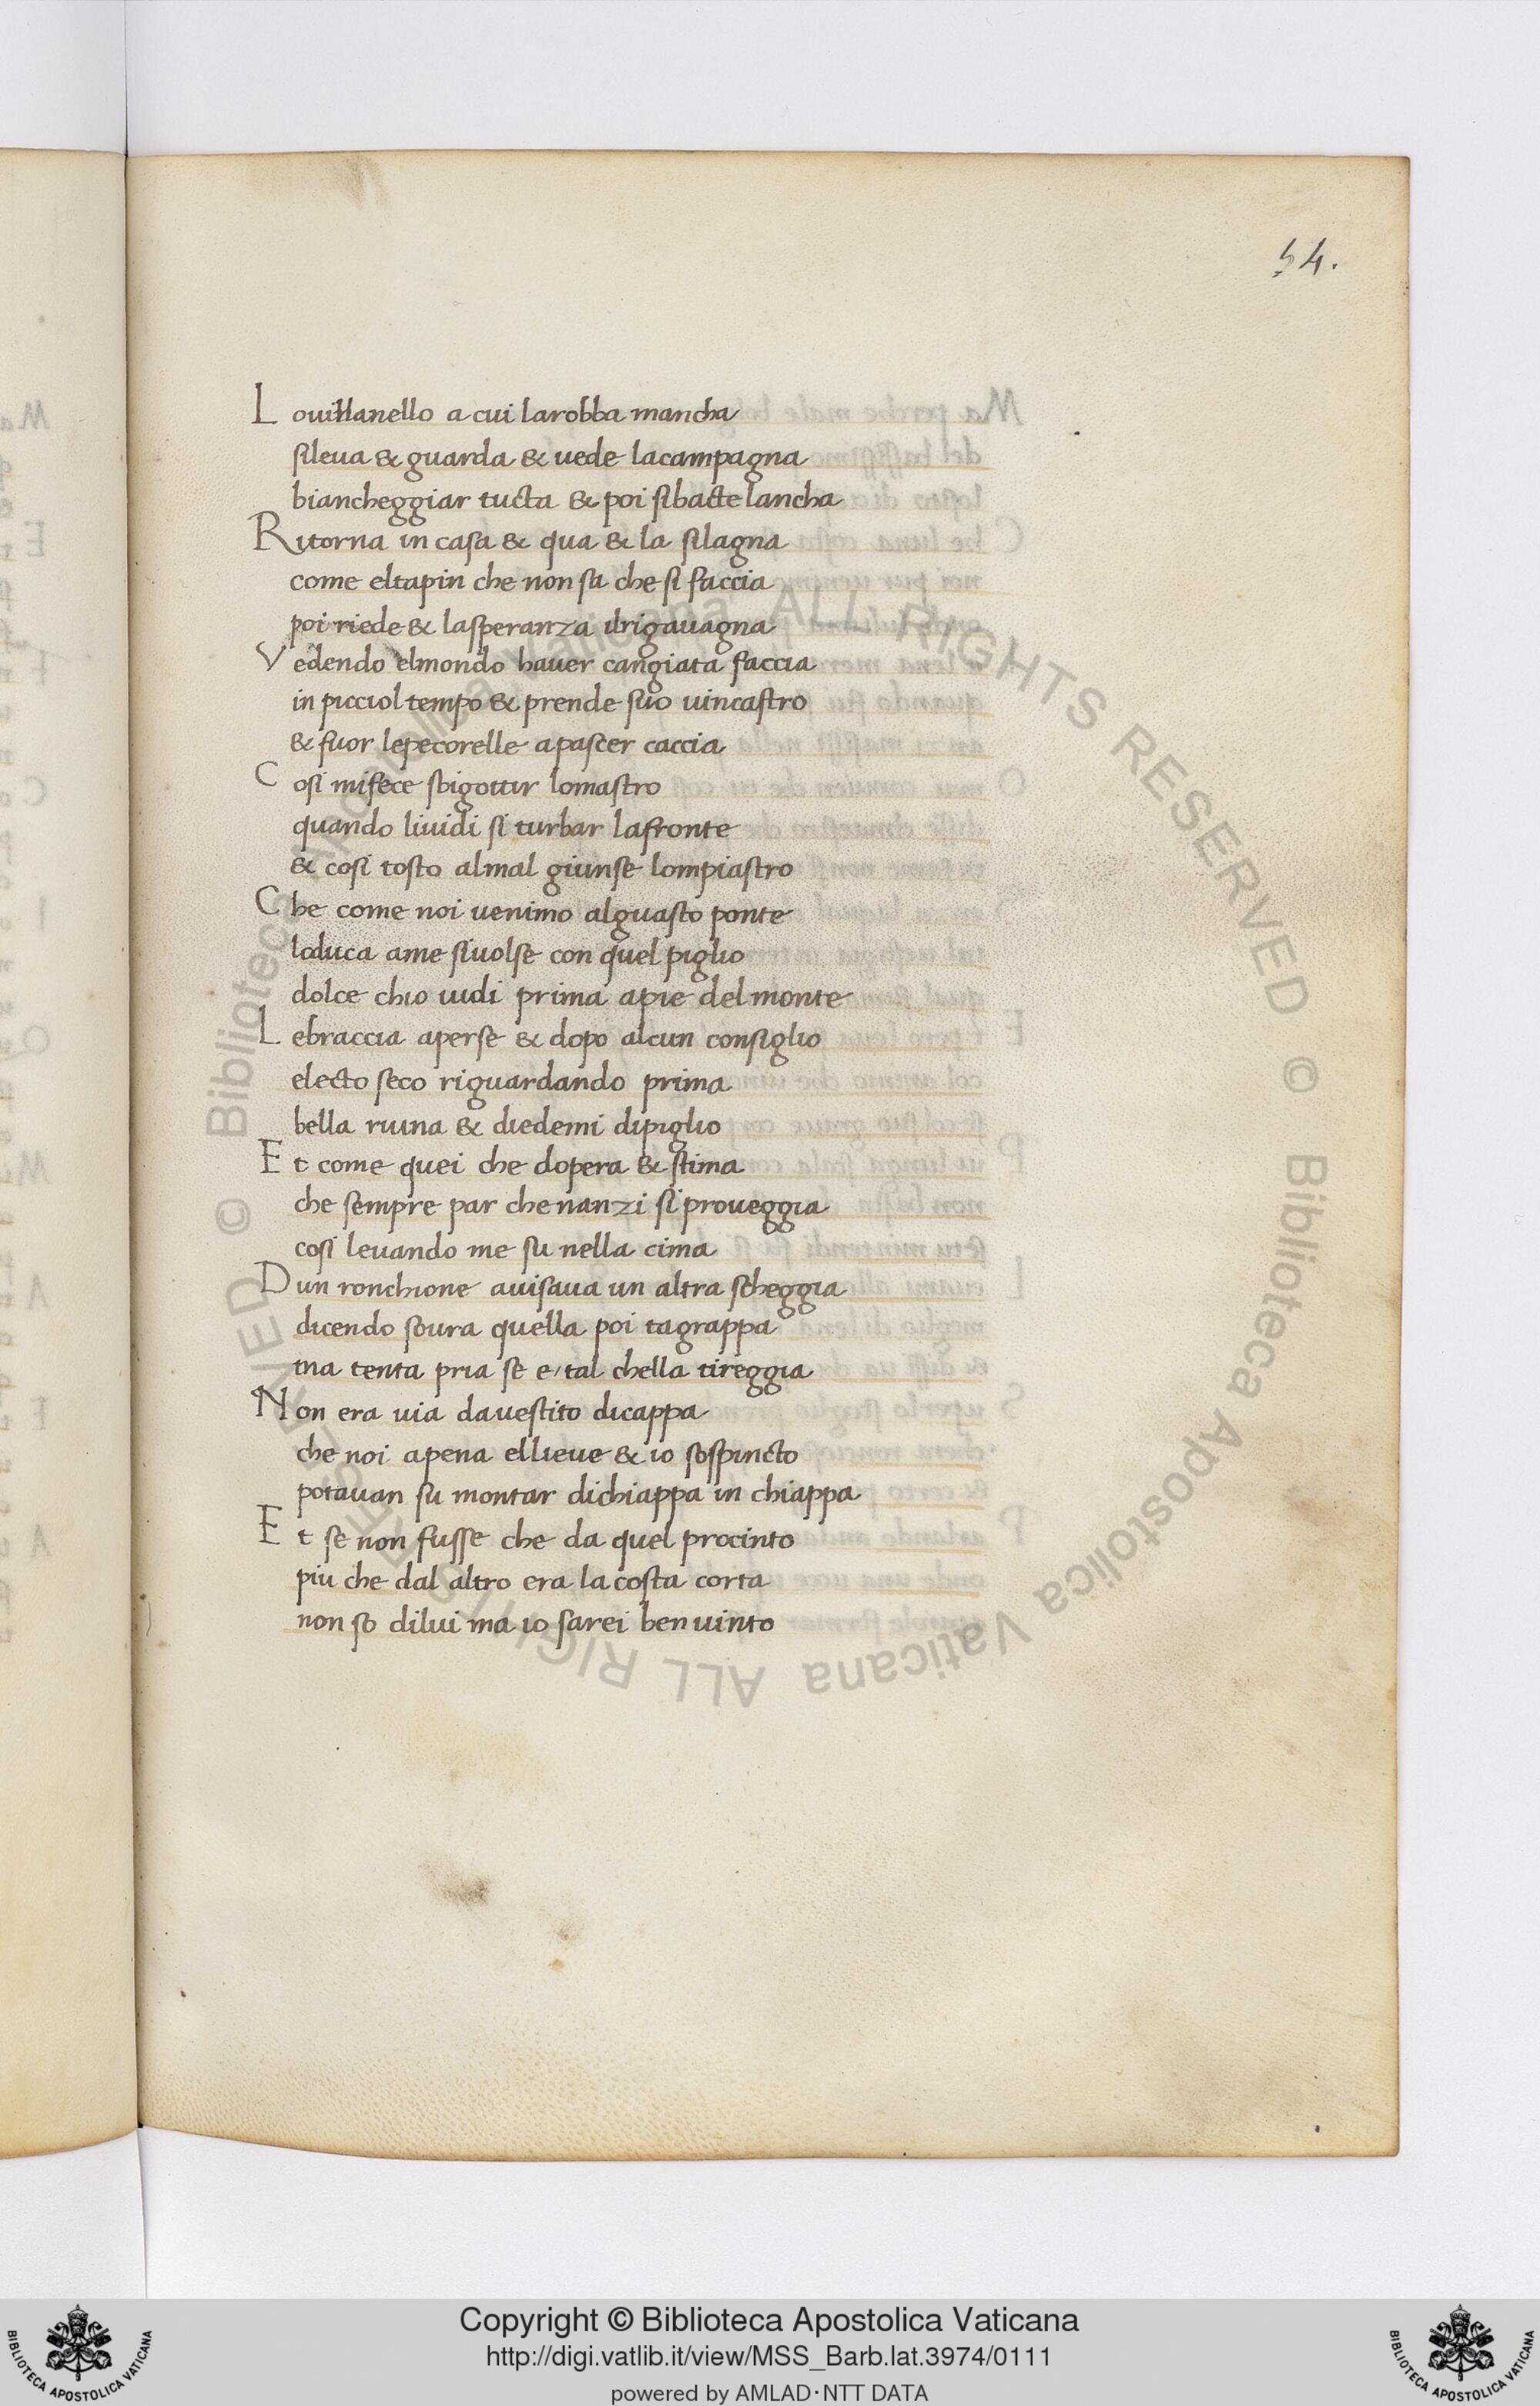 54.
L ouillanello a cui larobba mancha
sileua & guarda & uede lacampagna
biancheggiar tucta & poi sibacte lancha
Ritorna in casa & qua & la silagna
come eltapin che non sa che si faccia
poi riede & lasperanza ilrigauagna
V edendo elmondo hauer cangiata faccia
in picciol tempo & prende suo uincastro
& fuor lepecorelle a pascer caccia
C osi mifece sbigottir lomastro
quando liuidi si turbar lafronte
& cosi tosto almal giunse lompiastro
C he come noi uenimo alguasto ponte
loduca ame siuolse con quel piglio
dolce chio uidi prima apie delmonte
L ebraccia aperse & dopo alcun consiglio
electo seco riguardando prima
bella ruina & diedemi dipiglio
E t come quei che dopera & stima
che sempre par che nanzi si proueggia
cosi leuando me su nella cima
D un ronchione auisaua un altra scheggia
dicendo soura quella poi tagrappa
ma tenta pria se e, tal chella tireggia
N on era uia dauestito dicappa
che noi apena ellieue & io sospincto
potauan su montar dichiappa in chiappa
E t se non fusse che da quel procinto
piu che dal altro era la costa corta
non so dilui ma io sarei ben uinto
© Biblioteca Apostolica Vaticana ALL RIGHTS RESERVED © Biblioteca Apostolica Vaticana ALL RIGHTS RESERVED
Copyright © Biblioteca Apostolica Vaticana
http://digi.vatlib.it/view/MSS_Barb.lat.3974/0111
powered by AMLAD·NTT DATA
BIBLIOTECA APOSTOLICA VATICANA
BIBLIOTECA APOSTOLICA VATICANA